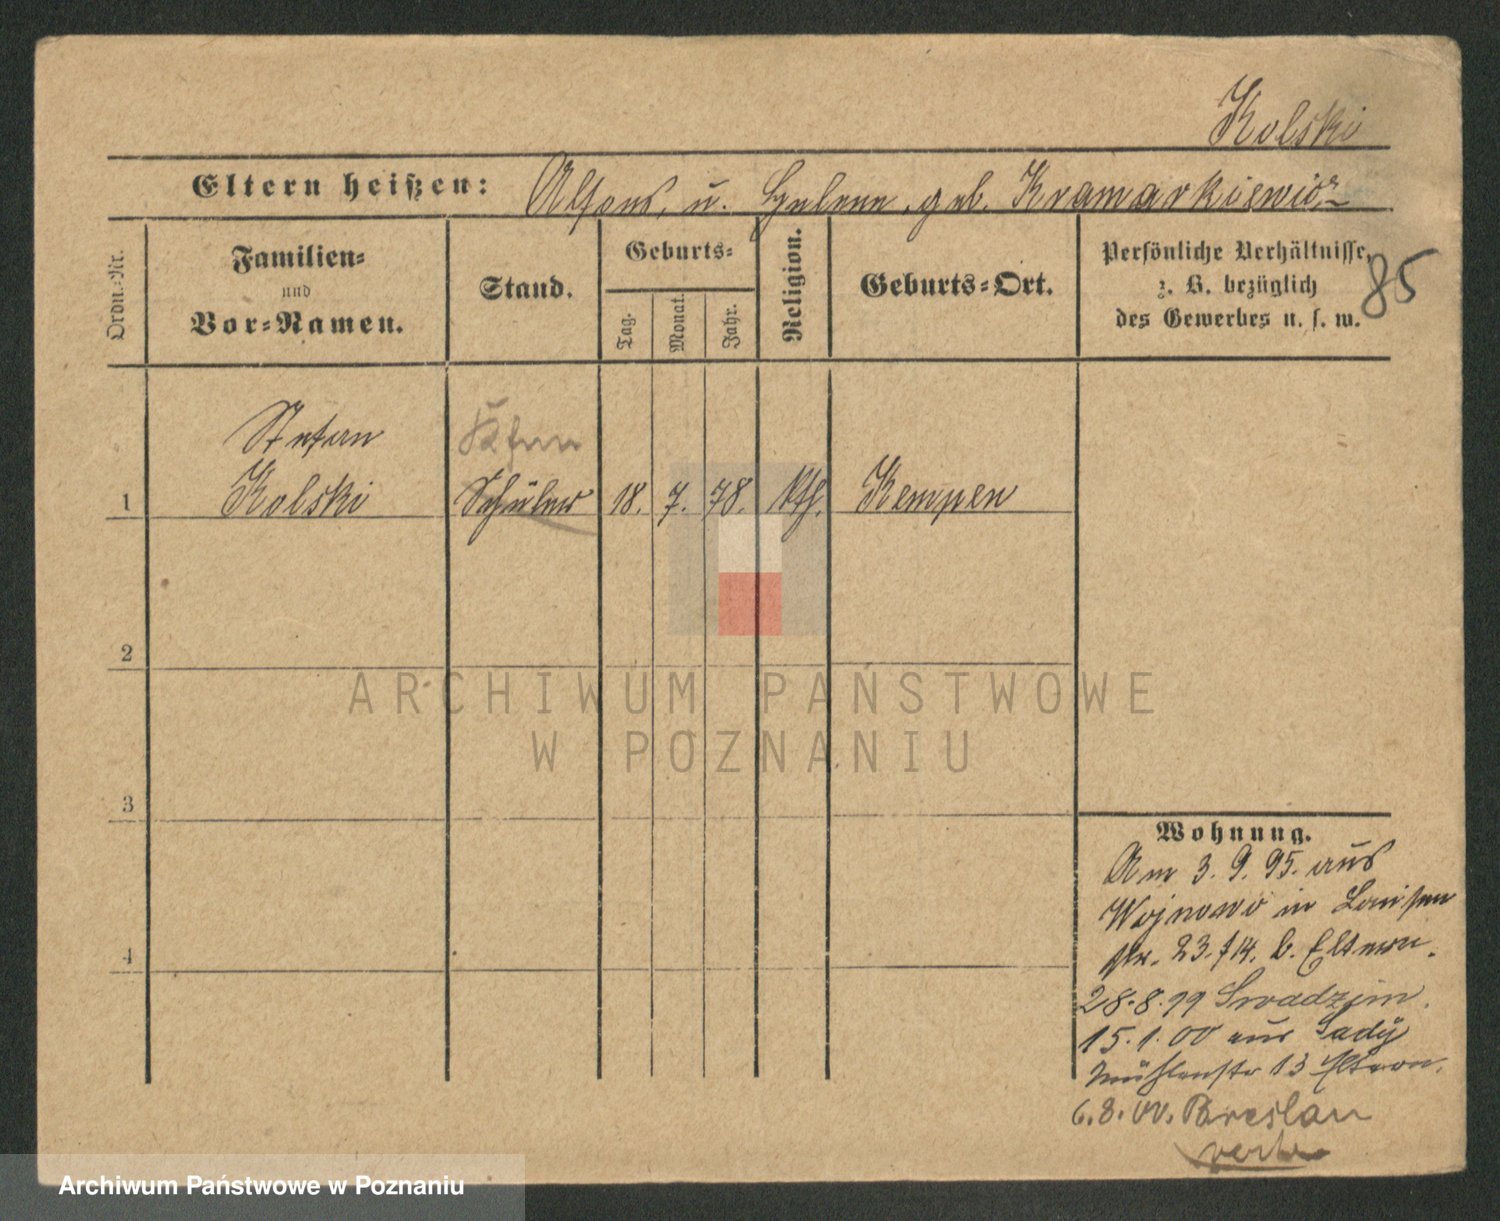 Kolski
Eltern heißen: Alfons, u. Helene, geb. Kramarkiewicz
Ordn.-Nr.
Familien-
und
Vor-Namen.
Stand.
Geburts-
Tag.
Monat.
Jahr.
Religion.
Geburts-Ort.
Persönliche Verhältnisse,
z. B. bezüglich
des Gewerbes u. s. w.
85
Stefan
1 Kolski Schüler 18. 7. 78. kth. Kempen
2
3
4
Wohnung.
Am 3. 9. 95. aus
Wojnowo in Louisen
str. 23. b. Eltern.
28.8.99 Swadzim.
15.1.00 aus Sady
Mühlenstr 13 Eltern.
6.8.00. Breslau
ARCHIWUM PAŃSTWOWE
W POZNANIU
Archiwum Państwowe w Poznaniu